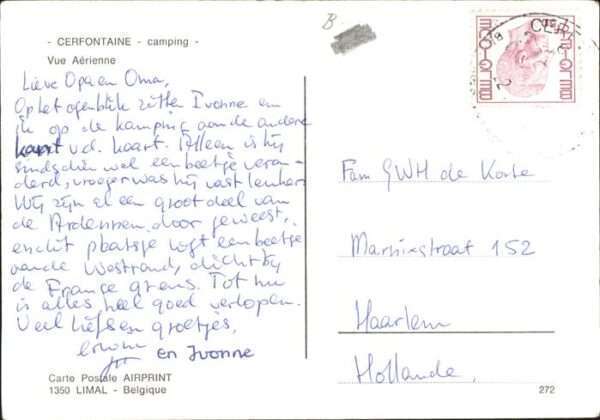 - CERFONTAINE - camping -
Vue Aérienne
Lieve Opa en Oma,
Op het ogenblik zitten Ivonne en
ik op de kamping aan de andere
kant v.d. kaart. Alleen is hij
sindsdien wel een beetje veran-
derd, vroeger was hij vast leuker.
Wij zijn al een groot deel van
de Ardennen door geweest,
en dit plaatsje ligt een beetje
aan de Westrand, dicht bij
de Franse grens. Tot nu
is alles heel goed verlopen.
Veel liefs en groetjes,
en Ivonne
Carte Postale AIRPRINT
1350 LIMAL - Belgique
B
BELGIE-BELGIQUE
CERF
Fam GWH de Korte
Marnixstraat 152
Haarlem
Hollande.
272